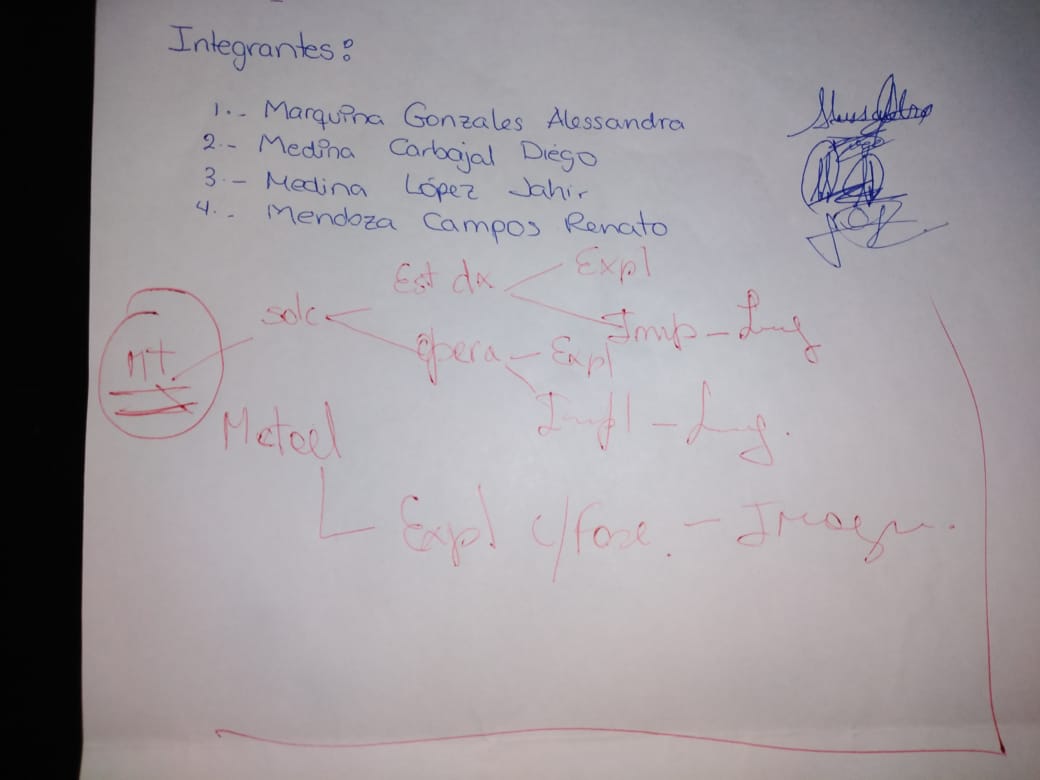 Integrantes:
1.- Marquina Gonzales Alessandra
2.- Medina Carbajal Diego
3.- Medina López Jahir
4.- Mendoza Campos Renato
Est dx Expl
solc
Imp - Img
MT
Opera - Expl
Impl - Img.
Metod
Expl c/fase. - Imagen.